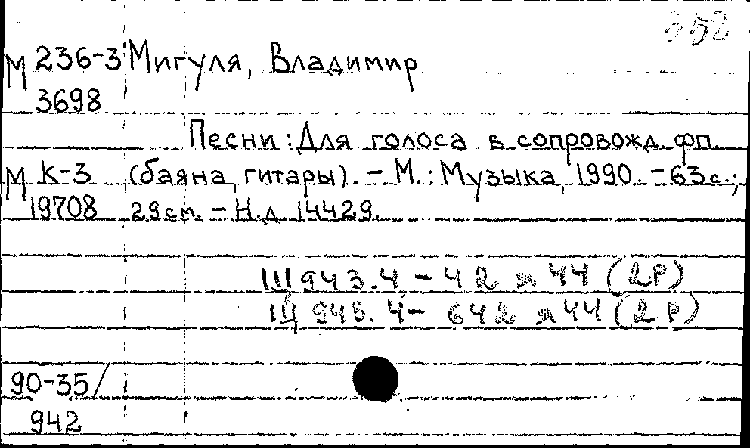 352
М 236-3 Мигуля, Владимир
3698
Песни: Для голоса в сопровожд. фп.
М К-3 (баяна, гитары). – М.: Музыка, 1990. – 63 с.;
19708 29 см. – Н.д. 14429.
Щ 943.4 – 42 я 44 (2Р)
Щ 945.4 – 642 я 44 (2Р)
90-35/
942